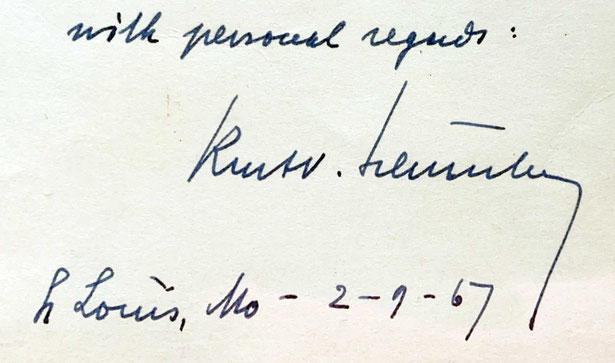 with personal regards:
Kurt v. Schuschnigg
St Louis, Mo - 2-9-67